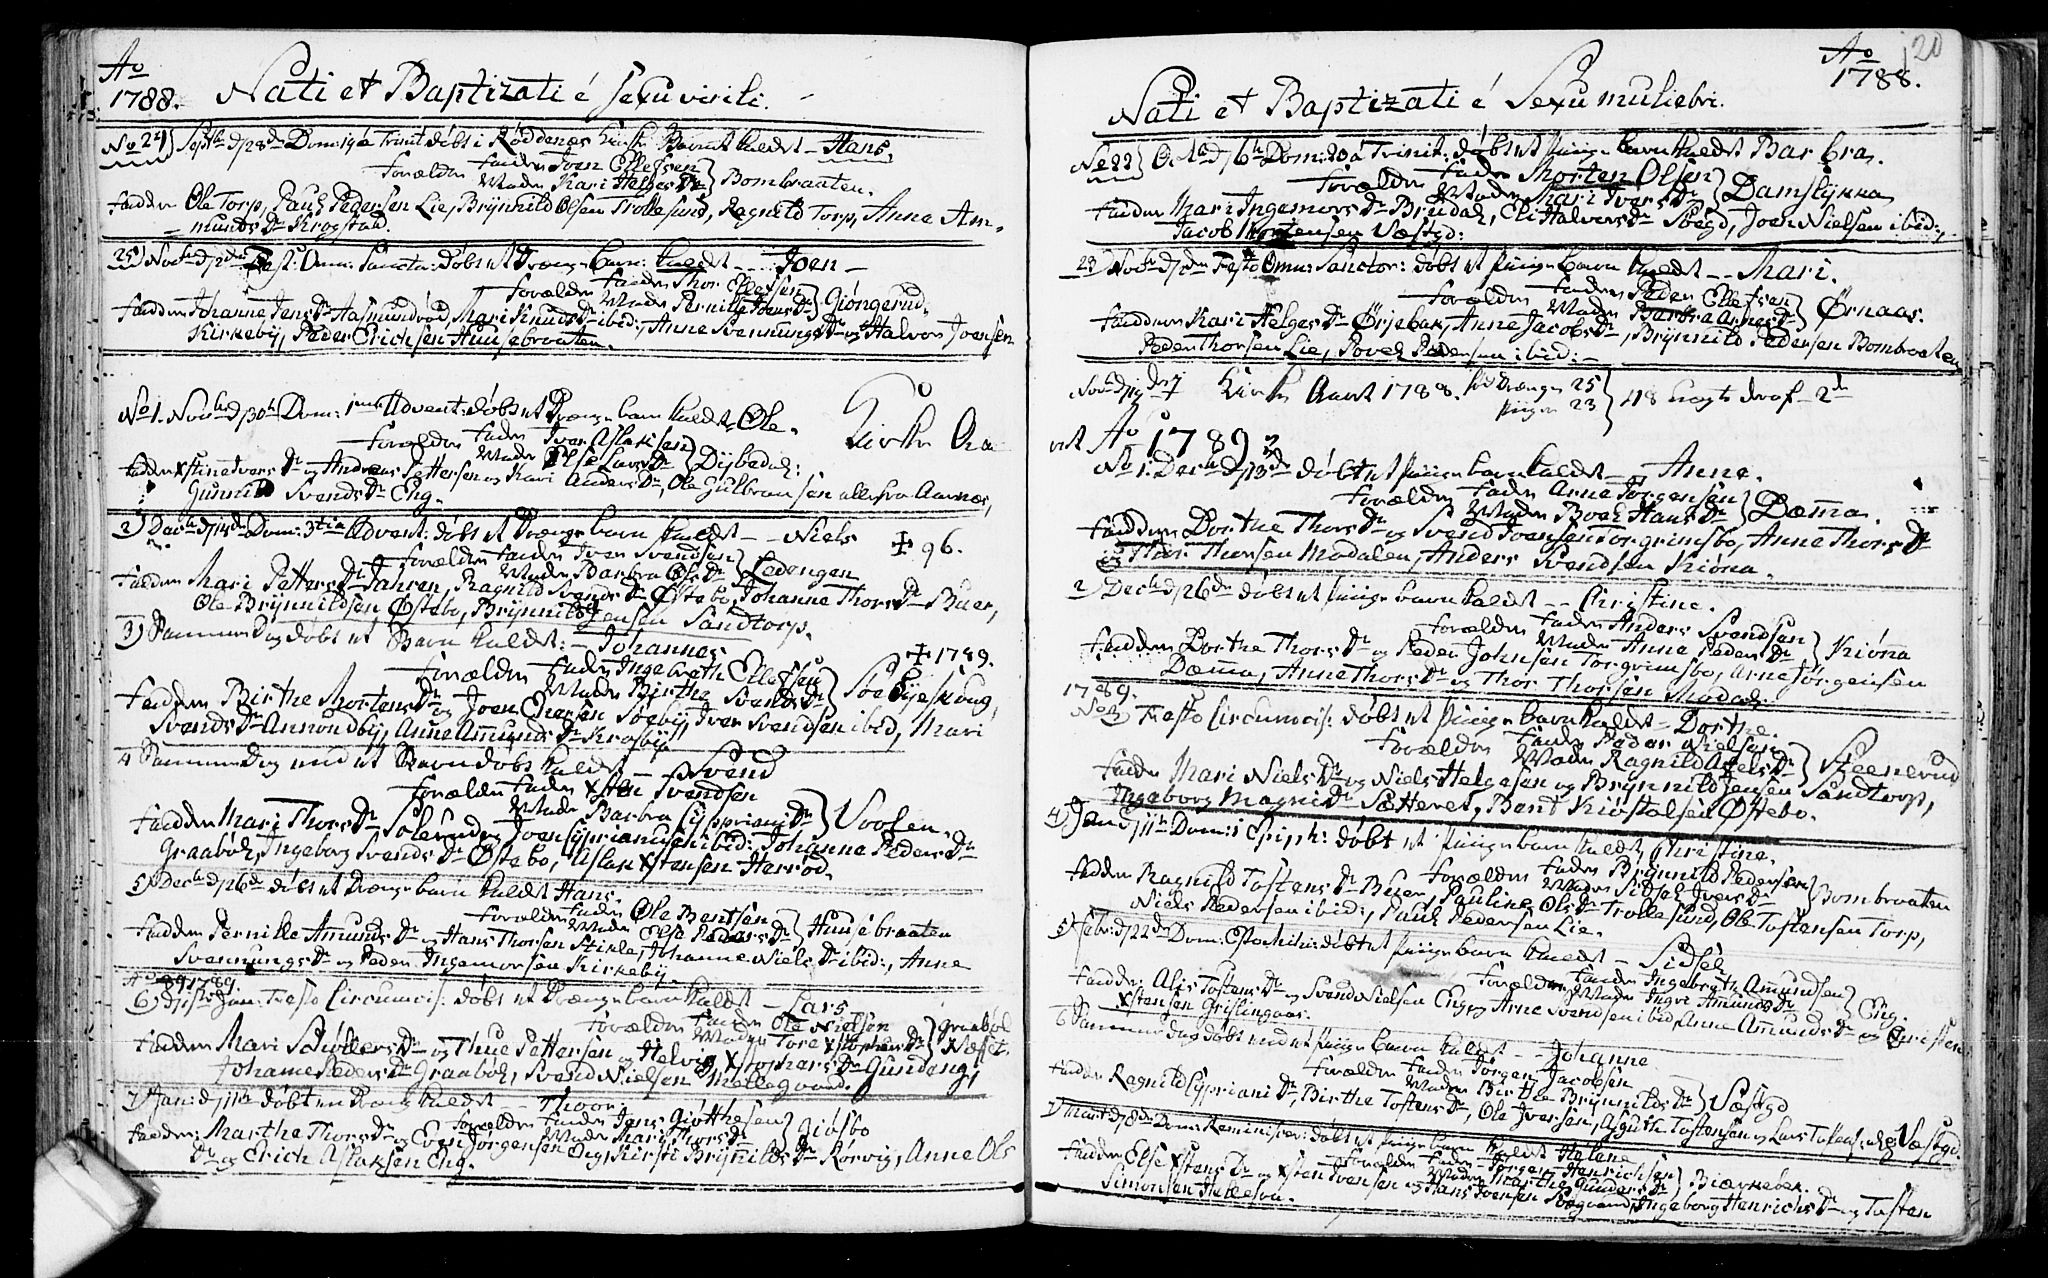 Ao
1788. Nati et Baptizati é sexu virili.
No 24) Septbr d 28de Dom: 19 á Trinit døbt i Røddenæs Kirke Barnet kaldet - Hans,
Forældre Fader Iver Ellefsen
Moder Kari Helges Dr } Bombraaten.
Fadder Ole Torp, Paul Pedersen Lie, Brÿnnild Olsen Trollesund, Ragnild Torp, Anne Am-
munds Dr Krogstad.
25) Novbr d Fest: Omn: Sanctor: døbt et Drænge barn kaldet -- Joen -
Forældre Fader Thor Ellefsen
Moder Pernille Joens Dr } Giöngerud.
Faddere Johanne Jens Dr Aasmundrød, Mari Knuds Dr ibid:, Anne Svennungs Dr og Halvor Joensen
Kirkebÿ, Peder Erichsen Huusebraaten.
No 1. Novbr d 30te Dom: 1ma Advent: døbt et Drænge barn kaldet Ole. Kirke Aa-
Forældre Fader Iver Aslaksen
Moder Else Lars Dr } Dÿbedal:
Fadder Xstine Ivers Dr og Andreas Pettersen og Kari Anders Dr, Ole Gulbransen alle fra Aarnæs,
Gunnild Svends Dr Eng.
2) Decbr d 14de Dom: 3tia Advent: døbt et Drænge barn kaldet -- Niels ‡ 96.
Forældre Fader Iver Svendsen
Moder Barbra Ols Dr } Ledengen
Faddere Mari Petters Dr Jahren, Ragnild Svends Dr Østebo, Johanne Thors Dr Buer,
Ole Brÿnnildsen Østebo, Brÿnnild Jensen Sandtorp.
3) Samme Dag døbt et Barn kaldet: - Johannes ‡ 1789.
Forældre Fader Ingebreth Ellefsen
Moder Birthe Svends Dr } Søebÿeskoug
Faddere Birthe Mortens Dr og Joen Ellersen Søebÿ, Iver Svendsen ibid, Mari
Svends Dr Amondbÿ, Anne Amunds Dr Krosbÿ
4 Samme Dag end et Barn døbt kaldet - Svend
Forældre Fader Xsten Svendsen
Moder Barbra Cÿpriani Dr } Voolen.
Faddere Mari Thors Dr Solerud og Joen Cÿprianusen ibid: Johanne Peders Dr
Graabøl, Ingeborg Svends Dr Østebo, Aslak Xstensen Herrød.
5) Decbr d 26de døbt et Drænge barn kaldet Hans.
Forældre Fader Ole Bentsen
Moder Else Peders Dr } Huusebraaten
Faddere Pernille Amunds Dr og Hans Thorsen Stikle, Johanne Niels Dr ibid:, Anne
Svennungs Dr og Peder Ingemorsen Kirkebÿ.
Ao 1789.
6) d 1ste Jan: Festo Circumcis: døbt et Drænge barn kaldet - Lars
Forældre Fader Ole Nielsen
Moder Tore Xstophers Dr } Graabøl Næsset.
Faddere Mari Schøllers Dr og Thue Pettersen og Helvig Xstophers Dr Gundeng,
Johanne Peders Dr Graabøl, Svend Nielsen Mellegaard.
7) Jan: d 11te døbt en Dreng kaldet - Thoor.
Forældre Fader Jens Giöthesen
Moder Mari Thors Dr } Giösbo
Fadder: Marthe Thors Dr og Even Jörgensen Eng, Kirsti Brÿnilds Dr Kørvig, Anne Ols
Dr og Erich Aslaksen Eng.
120
Ao
1788.
Nati et Baptizati é Sexu muliebri.
No 22) Octbr d 6te Dom: 20 á Trinit: døbt et Piige barn kaldet Barbra.
Forældre Fader Morten Olsen
Moder Mari Ivers Dr } Damslÿkka
Faddere Mari Ingemors Dr Brudal, Eli Halvors Dr, Joen Nielsen ibid:,
Jacob Mortensen Væstgd:
23) Novbr d Festo Omn: Sanctor: døbt et Piige barn kaldet -- Mari.
Forældre Fader Peder Ellefsen
Moder Barbra Arnes Dr } Ørnaas.
Faddere Kari Helges Dr Ørjebak, Anne Jacobs Dr, Brÿnnild Pedersen Bombraaten
Peder Thorsen Lie, Povel Pedersen ibid: -
Kirke Aaret 1788. Drænger 25
Piiger 23 } 48 Ægte deraf 2de
Ao 1789
No 1. Decbr d 13de døbt et Piige barn kaldet - Anne.
Forældre Fader Arne Jörgensen
Moder Boel Hans Dr } Dæma.
Faddere Dorthe Thors Dr og Svend Ivensen Torgrimsbo, Anne Thors Dr
og Thor Thorsen Modalen, Anders Svendsen Kiöna.
2) Decbr d 26de døbt et Piige barn kaldet -- Christine.
Forældre Fader Anders Svendsen
Moder Anne Peders Dr } Kiöna
Faddere Dorthe Thors Dr og Peder Johnsen Torgrimsbo, Arne Jörgensen
Dæma, Anne Thors Dr og Thor Thorsen Modal:
1789.
No 3) Festo Circumcis: døbt et Piige barn kaldet - Dorthe.
Forældre Fader Peder Nielsen
Moder Ragnild Axels Dr } Steenerud
Fadder Mari Niels Dr og Niels Helgesen og Brÿnnild Jensen Sandtorp,
Ingeborg Magni Dr Sætteret, Bent Kiöstolsen Østebo.
4) Jan: d 11te Dom: 1 Epiph: døbt et Piige barn kaldet Christine.
Forældre Fader Brÿnnild Pedersen
Moder Sidsel Ivers Dr } Bombraaten
Fadder Ragnild Tostens Dr Buer, Pauline Ols Dr Trollesund, Ole Tostensen Torp,
Niels Pedersen ibid:, Paul Pedersen Lie.
5) Febr: d 22de Dom: Estomihi: døbt et Piige barn kaldet - Sidsel
Forældre Fader Ingebreth Amundsen
Moder Ingri Amunds Dr } Eng.
Faddere Alis Tostens Dr og Svend Nielsen Eng og Arne Svendsen ibid, Anne Amunds Dr og Christen
Xstensen Grislingaas.
6 Samme dag døbt end et Piige barn kaldet -- Johanne
Forældre Fader Jörgen Jacobsen
Moder Birthe Brÿnnilds Dr } Væstgd
Fadder Ragnild Cÿpriani Dr, Birthe Tostens Dr, Ole Iversen, Aaguthe Tostensen og Lars Tostensen Væstgd.
7) Mart: d 8de Dom: Reminiscer: døbt et Piige barn kaldet Helene
Forældre Fader Jörgen Henrichsen
Moder Marthe Gunders Dr } Biærkebek.
Faddere Else Xstens Dr og Xsten Ivensen og Hans Ivensen, Ingeborg Henrichs Dr og Tosten
Simonsen.